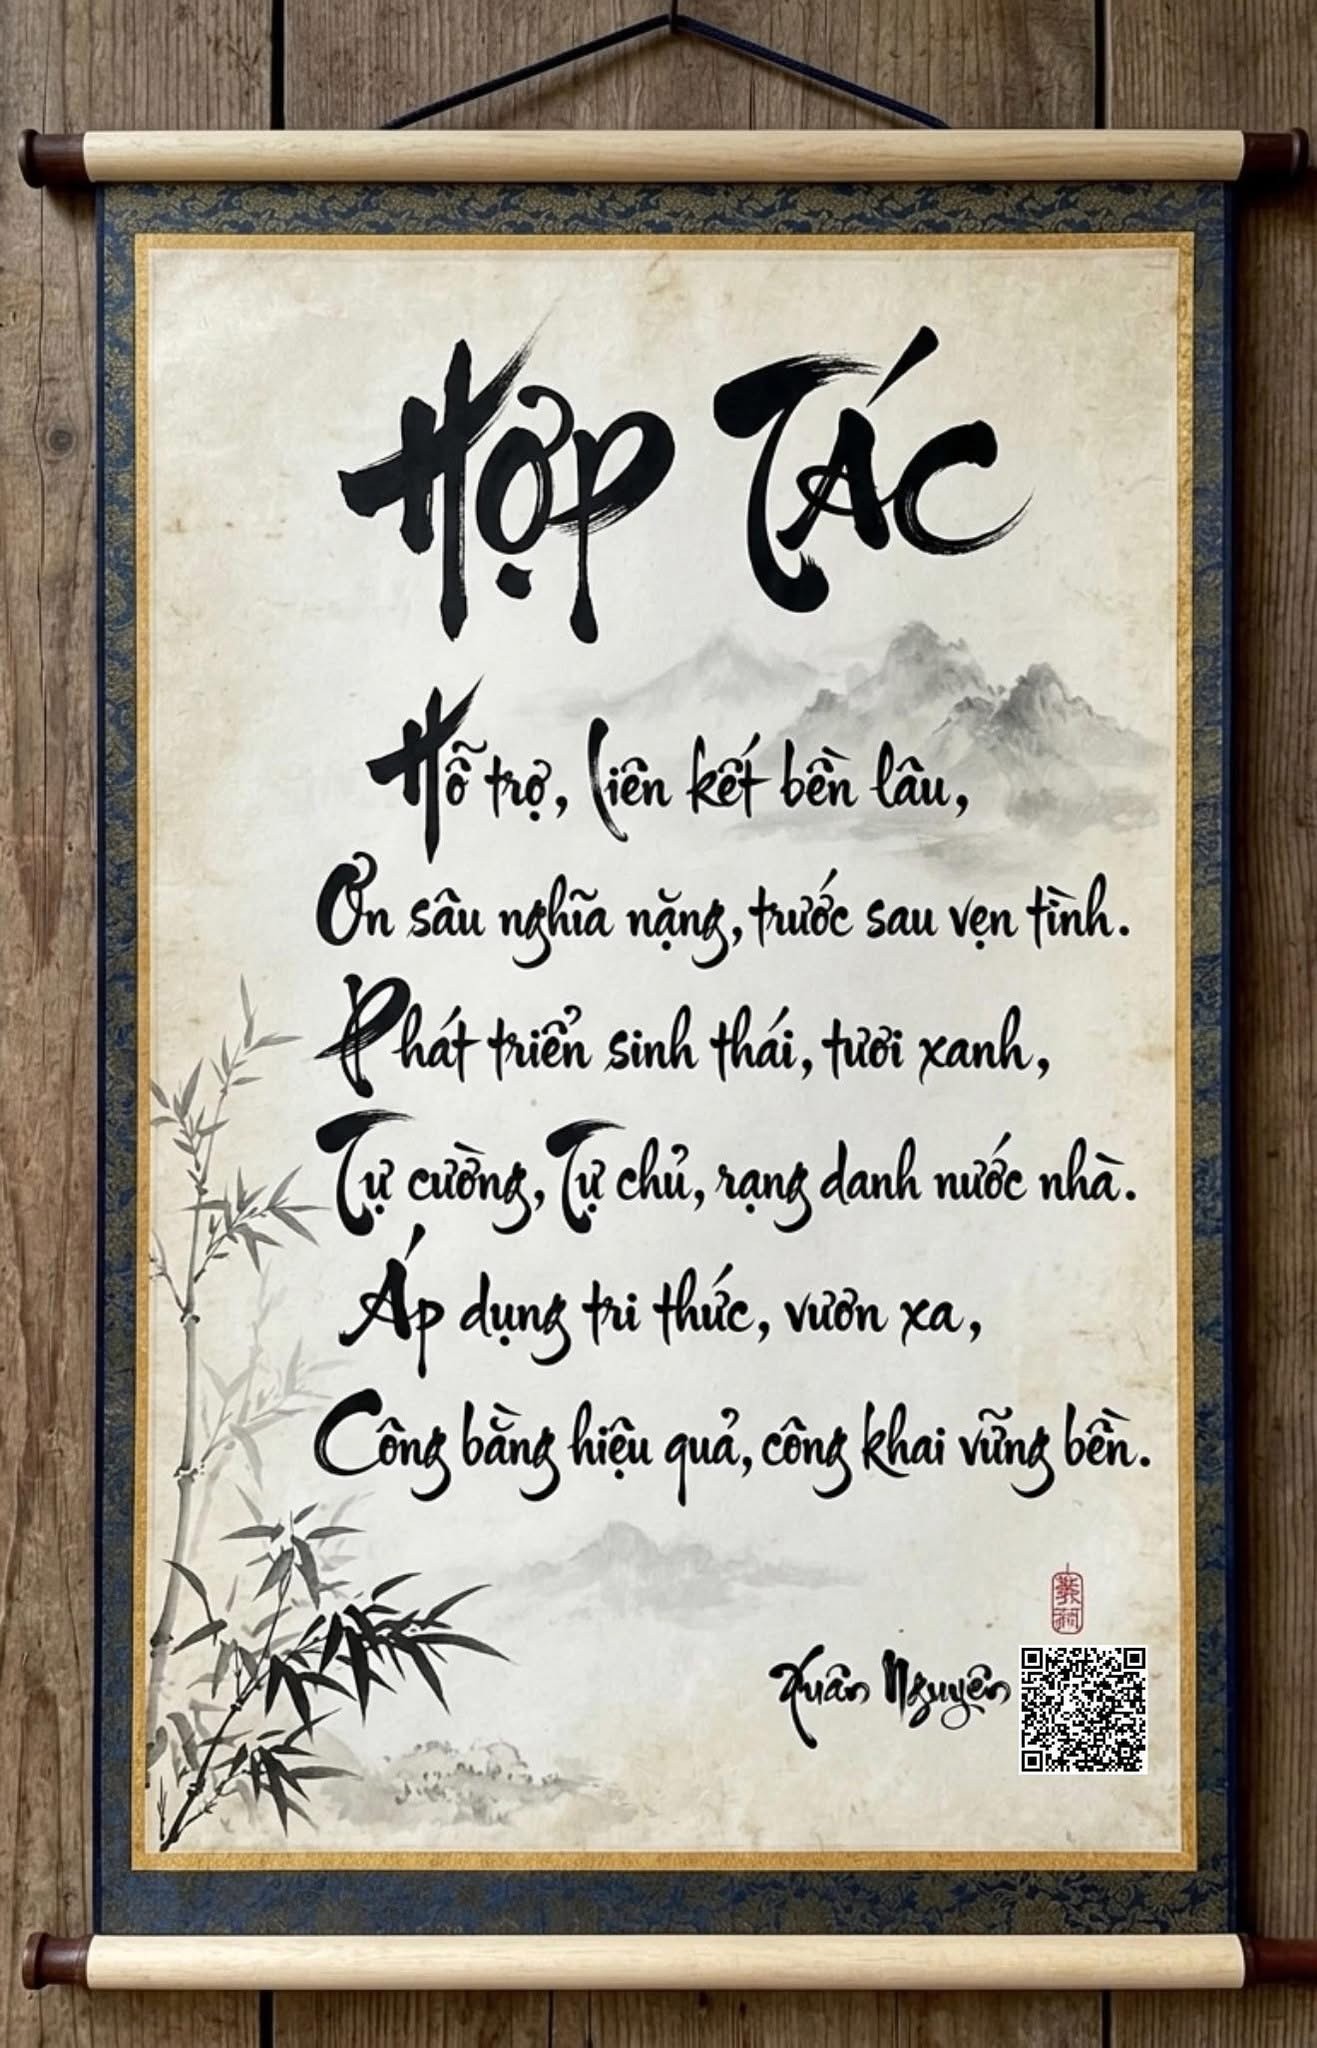 Hợp Tác
Hỗ trợ, liên kết bền lâu,
Ơn sâu nghĩa nặng, trước sau vẹn tình.
Phát triển sinh thái, tươi xanh,
Tự cường, Tự chủ, rạng danh nước nhà.
Áp dụng tri thức, vươn xa,
Công bằng hiệu quả, công khai vững bền.
Xuân Nguyên